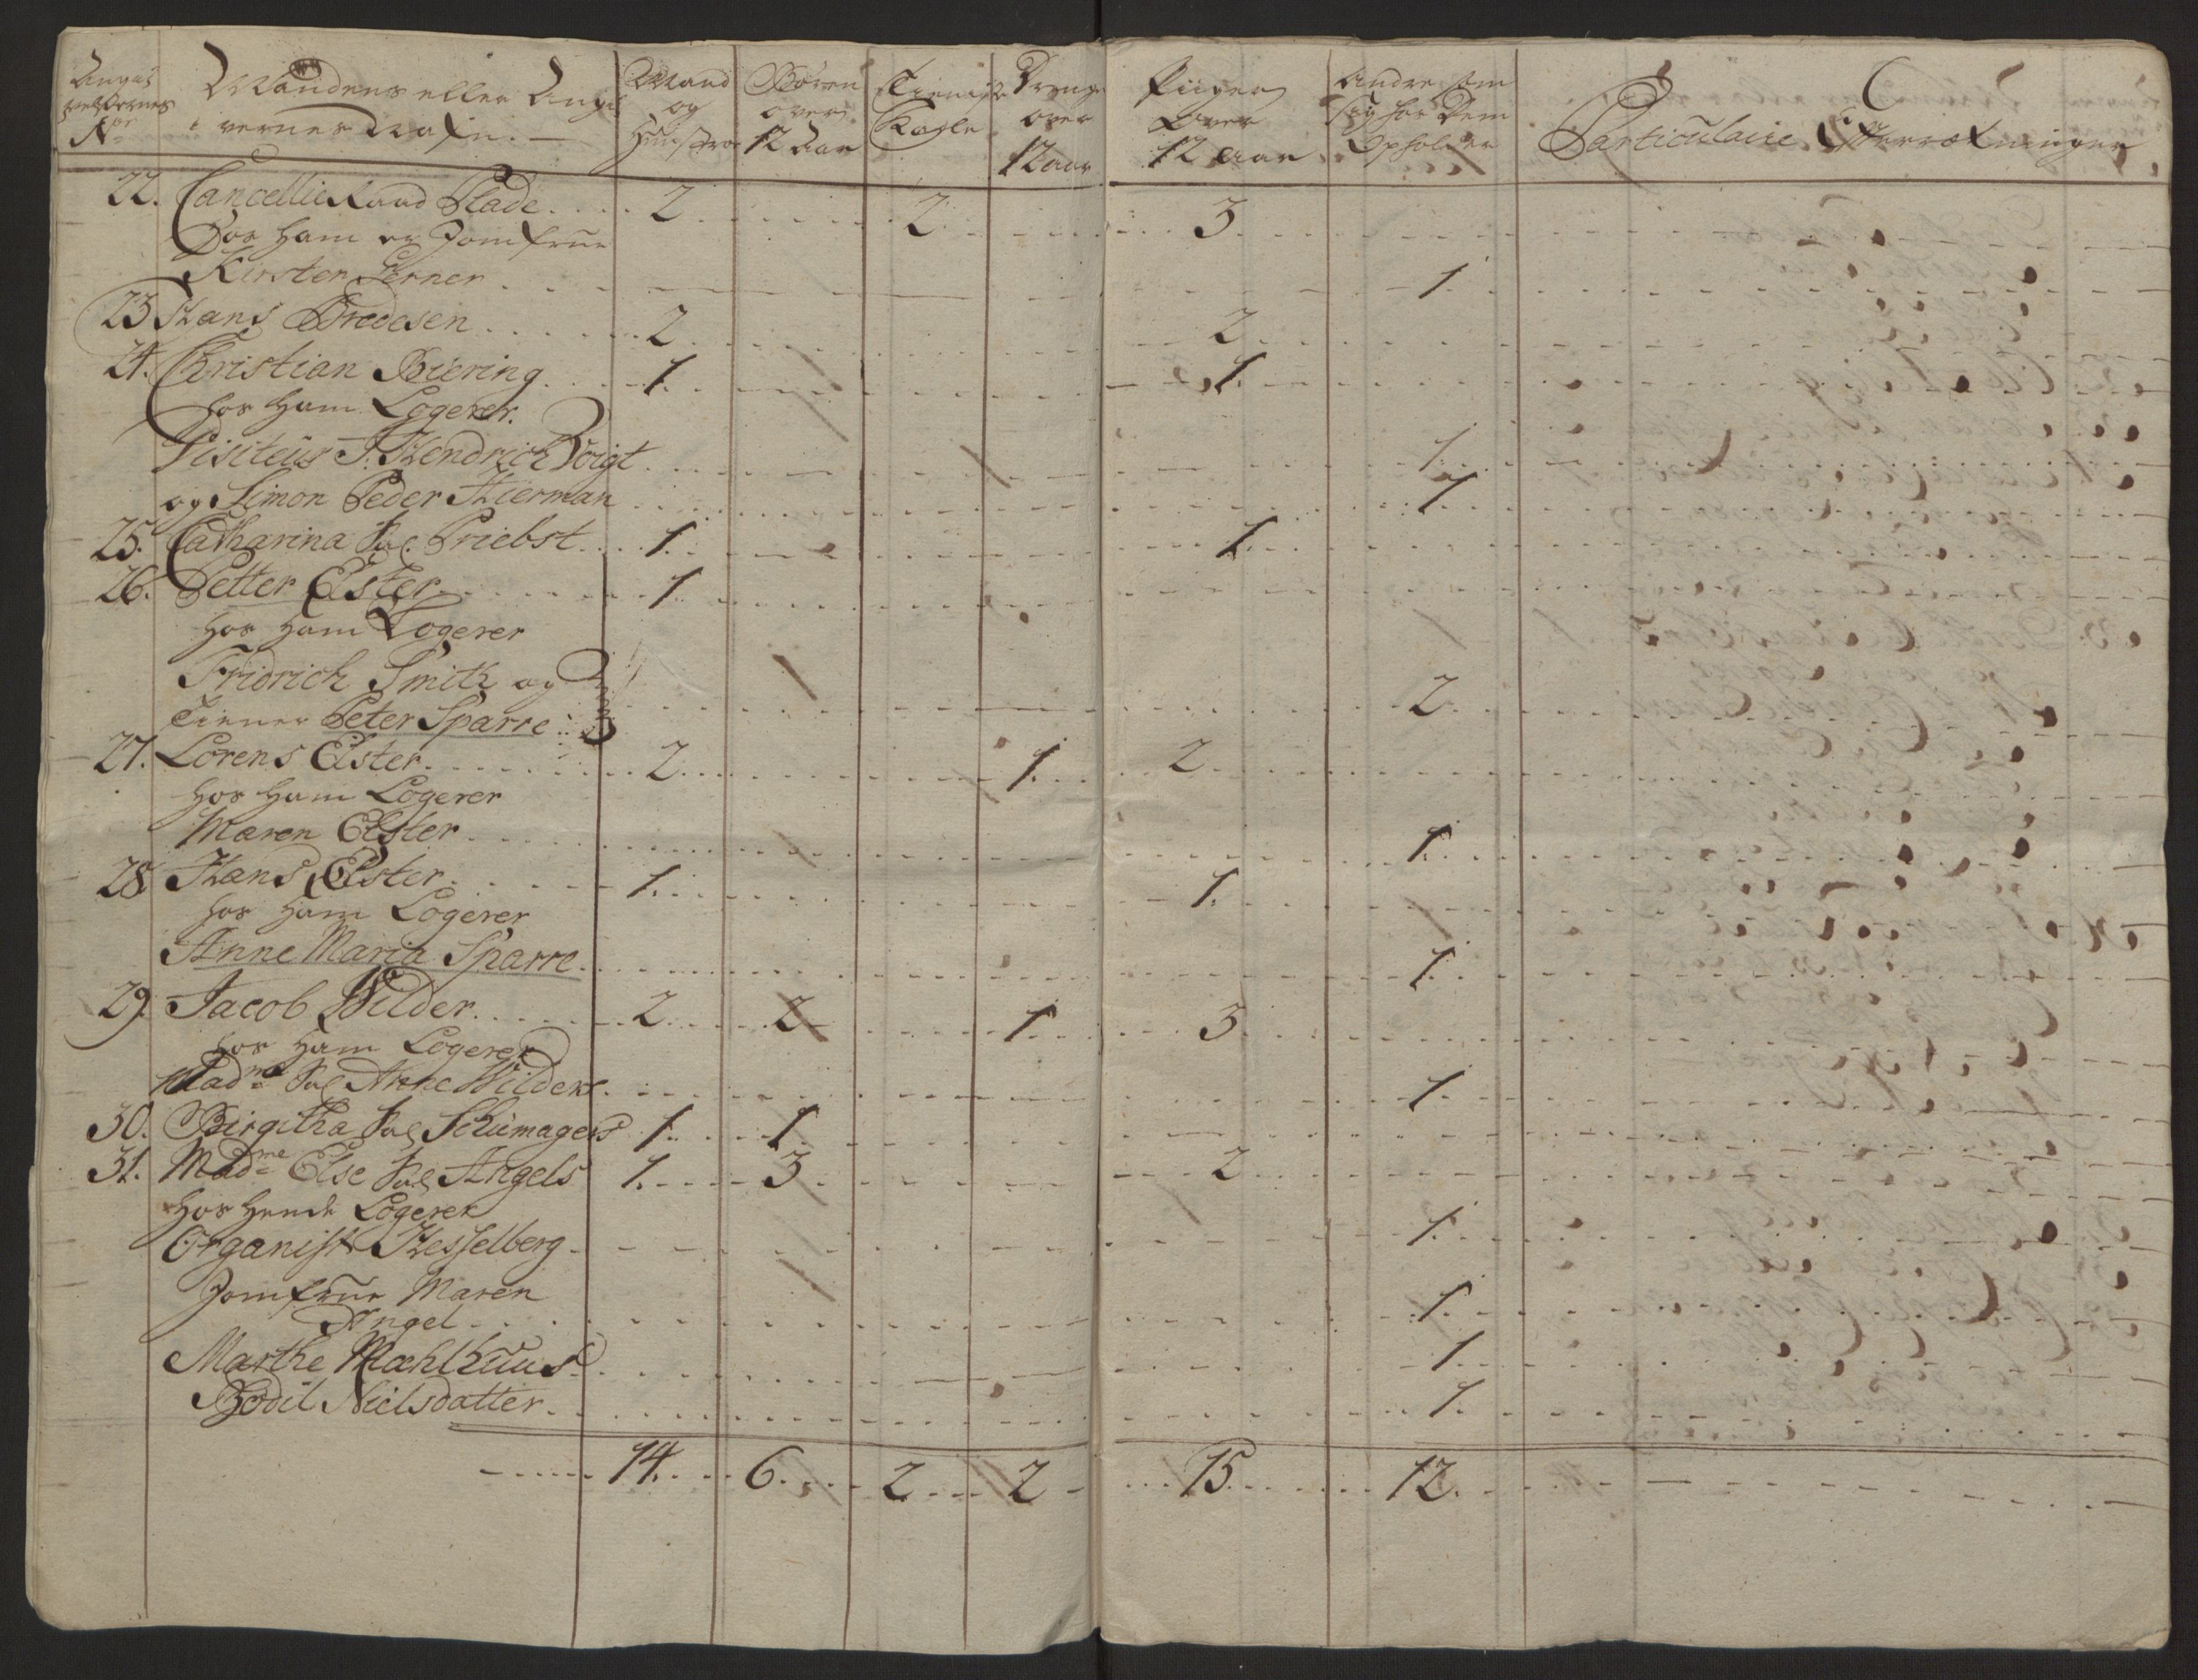 Angivelsernes No Mandens eller Angivernes Nafn. Mand og Hustroe Børen over 12 Aar Tieniste Karle Drenge over 12 aar Piiger over 12 aar Andre som sig hos Dem Opholder Particulaire Efterrætninger
22. Cancellie Raad Blade 2 2 3
Hos ham er Jomfrue
Kirsten Lerner 1
23 Hans Bredesen 2 2
24. Christian Biering 1 1
hos ham Logerer.
Visiteur J. Hendrich Voigt 1
og Simon Peder Hierman 1
25. Catharina Sal. Priebst 1 1
26. Petter Elster 1
hos ham Logerer
Fridrich Smith og
Tiener Peter Sparre 2
27. Lorens Elster 2 1 2
hos ham Logerer
Maren Elster 1
28 Hans Elster 1 1
hos ham Logerer
Anne Maria Sparre 1
29. Jacob Wilder 2 2 1 3
hos ham Logerer
Madme Sal Anne Wilders 1
30. Birgitha Sal Schumagers 1 1
31. Madme Else Sal Angels 1 3 2
hos hende Logerer
Organist Hesselberg 1
Jomfrue Maren
Angel 1
Marthe Mæhlhuus 1
Bodil Nielsdatter 1
14 6 2 2 15 12